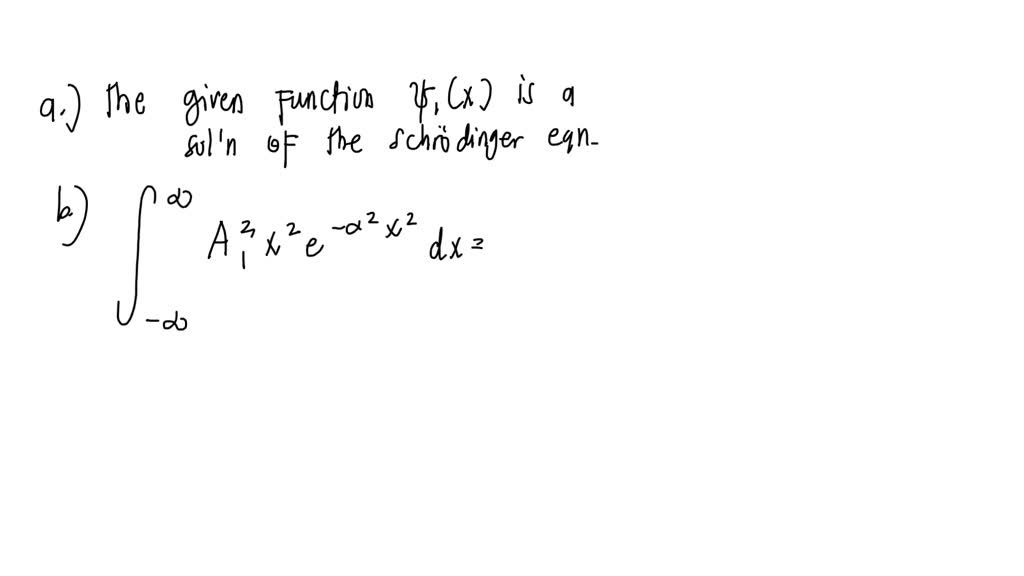 a.) the given function ψ₁(x) is a
sol'n of the schrödinger eqn-
b) ∫_{-∞}^{∞} A₁² x² e^{-α² x²} dx =